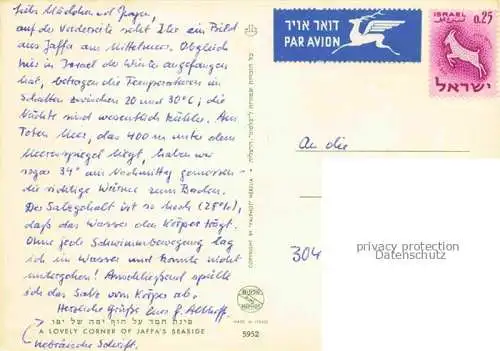 Liebe Mädchen und Jungen,
auf der Vorderseite seht Ihr ein Bild
aus Jaffa am Mittelmeer. Obgleich
hier in Israel der Winter angefangen
hat, betragen die Temperaturen im
Schatten zwischen 20 und 30°C; die
Nächte sind wesentlich kühler. Am
Toten Meer, das 400 m unter dem
Meeresspiegel liegt, haben wir
sogar 34° am Nachmittag gemessen –
die richtige Wärme zum Baden.
Der Salzgehalt ist so hoch (28%),
daß das Wasser den Körper trägt.
Ohne jede Schwimmbewegung lag
ich im Wasser und konnte nicht
untergehen! Anschließend spülte
ich das Salz vom Körper ab.
Herzliche Grüße Euer G. Althoff
פינת חמד על חוף ימה של יפו
A LOVELY CORNER OF JAFFA'S SEASIDE
hebräische Schrift.
כל הזכויות שמורות ל"פלפוט" הרצליה
COPYRIGHT BY "PALPHOT" HERZLIA
MADE IN ISRAEL
5952
דואר אויר
PAR AVION
0.25
ישראל
An die
304
privacy protection
Datenschutz